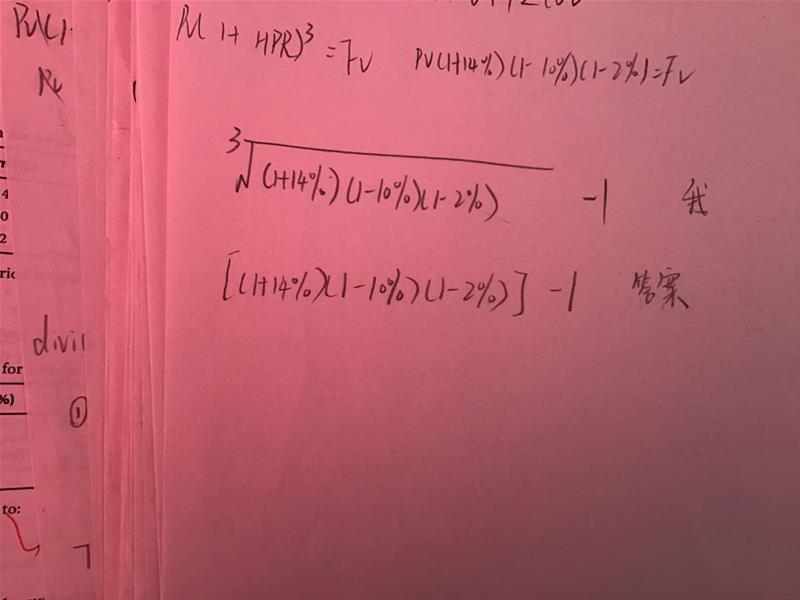 PV(1+
PV
PV(1+HPR)³=FV PV(1+14%)(1-10%)(1-2%)=FV
³√(1+14%)(1-10%)(1-2%) -1 我
[(1+14%)(1-10%)(1-2%)] -1 答案
4
0
2
divi
for
%)
①
to: